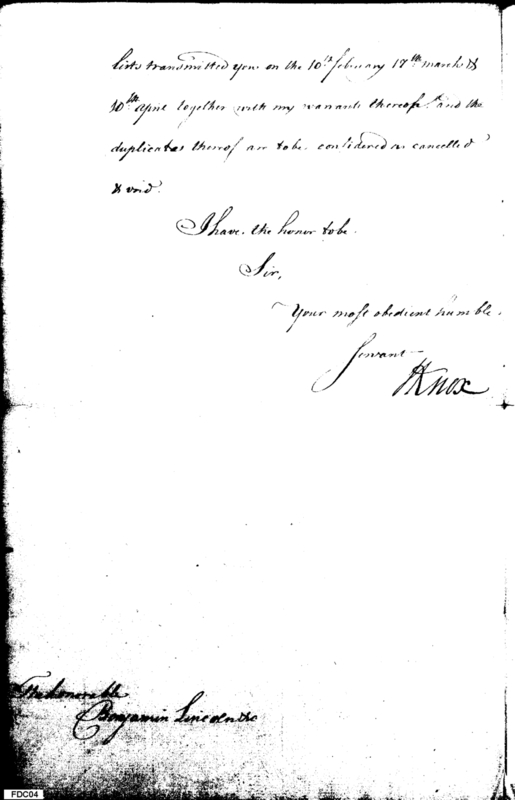 lists transmitted you on the 10th february 17th march &
10th april together with my warrants therefor and the
duplicates thereof are to be considered as cancelled
& void.
I have the honor to be
Sir,
Your most obedient humble
servant
HKnox
The honorable
Benjamin Lincoln &c
FDC04